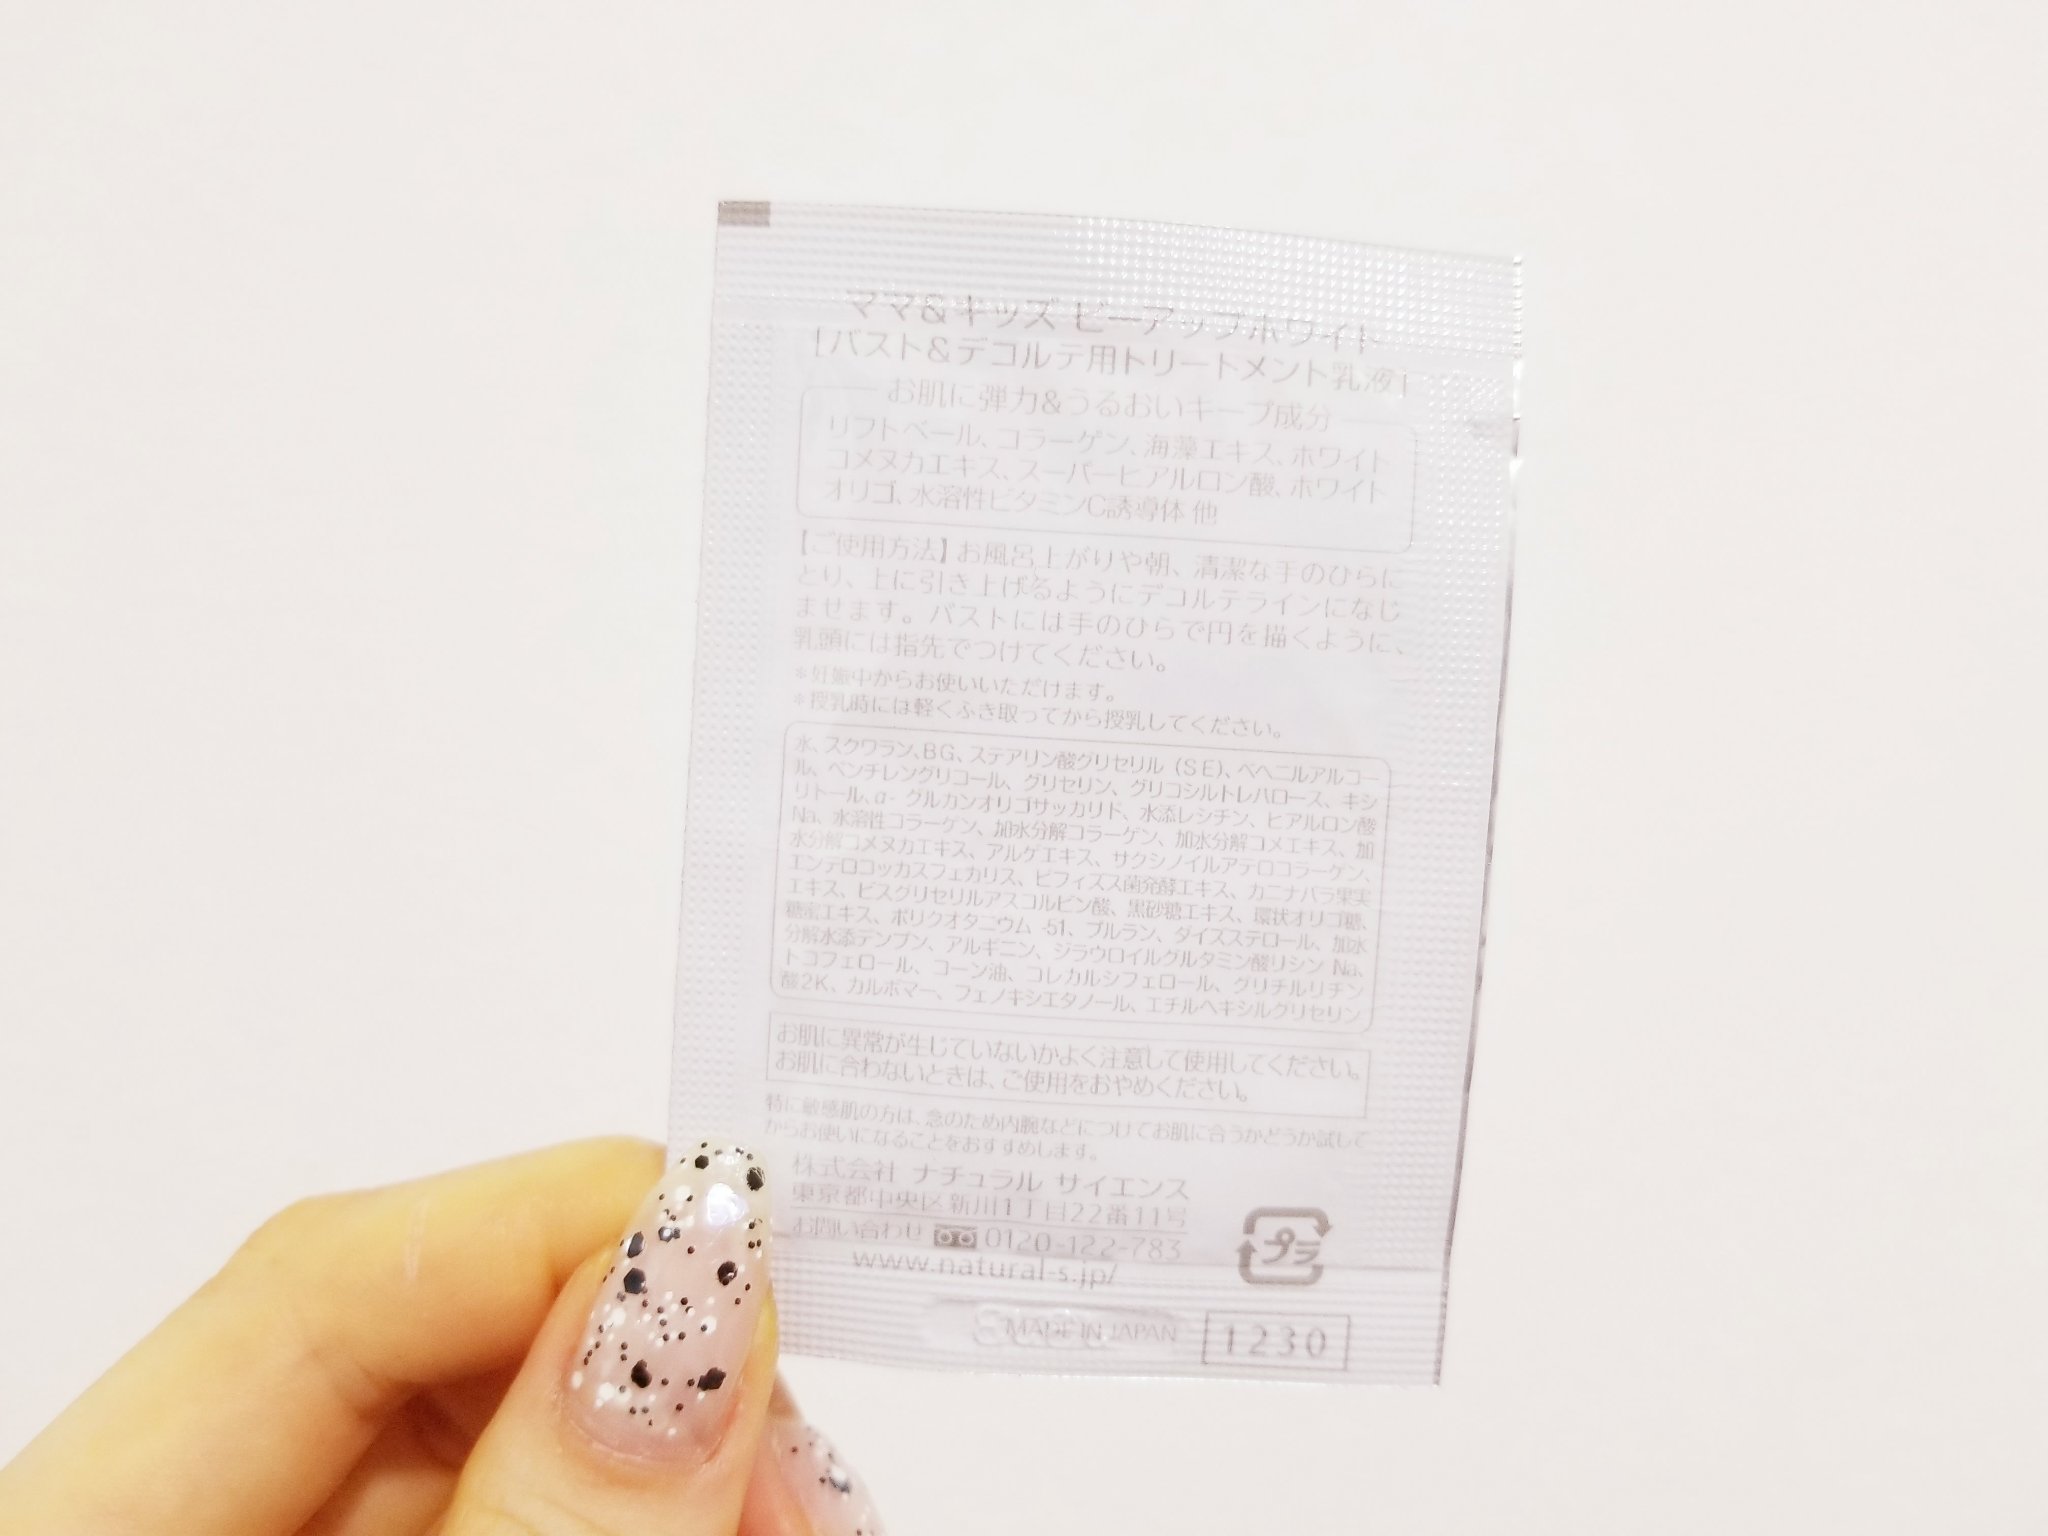 ママ&キッズ ビーアップホワイト
[バスト&デコルテ用トリートメント乳液]
お肌に弾力&うるおいキープ成分
リフトベール、コラーゲン、海藻エキス、ホワイト
コメヌカエキス、スーパーヒアルロン酸、ホワイト
オリゴ、水溶性ビタミンC誘導体 他
【ご使用方法】お風呂上がりや朝、清潔な手のひらに
とり、上に引き上げるようにデコルテラインになじ
ませます。バストには手のひらで円を描くように、
乳頭には指先でつけてください。
*妊娠中からお使いいただけます。
*授乳時には軽くふき取ってから授乳してください。
水、スクワラン、BG、ステアリン酸グリセリル(SE)、ベヘニルアルコー
ル、ペンチレングリコール、グリセリン、グリコシルトレハロース、キシ
リトール、α-グルカンオリゴサッカリド、水添レシチン、ヒアルロン酸
Na、水溶性コラーゲン、加水分解コラーゲン、加水分解コメエキス、加
水分解コメヌカエキス、アルゲエキス、サクシノイルアテロコラーゲン、
エンテロコッカスフェカリス、ビフィズス菌発酵エキス、カニナバラ果実
エキス、ビスグリセリルアスコルビン酸、黒砂糖エキス、環状オリゴ糖、
糖蜜エキス、ポリクオタニウム -51、プルラン、ダイズステロール、加水
分解水添デンプン、アルギニン、ジラウロイルグルタミン酸リシン Na、
トコフェロール、コーン油、コレカルシフェロール、グリチルリチン
酸2K、カルボマー、フェノキシエタノール、エチルヘキシルグリセリン
お肌に異常が生じていないかよく注意して使用してください。
お肌に合わないときは、ご使用をおやめください。
特に敏感肌の方は、念のため内腕などにつけてお肌に合うかどうか試して
からお使いになることをおすすめします。
株式会社 ナチュラル サイエンス
東京都中央区新川1丁目22番11号
お問い合わせ 0120-122-783
www.natural-s.jp/
プラ
MADE IN JAPAN
1230